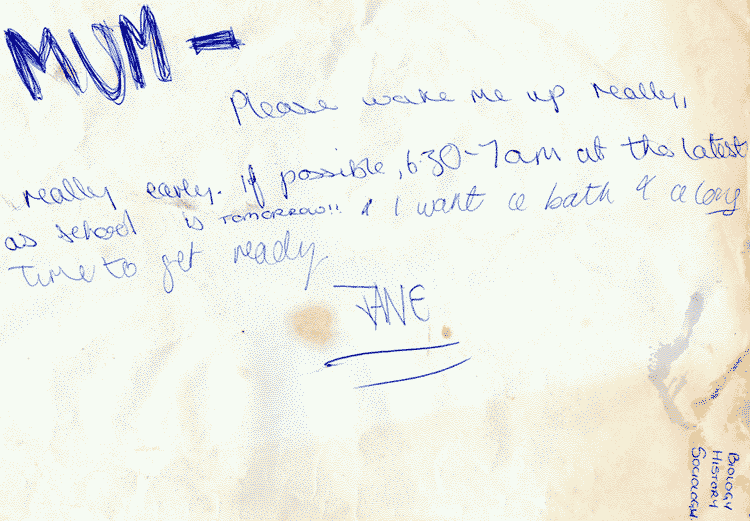 MUM -
Please wake me up really,
really early. If possible, 6:30-7am at the latest
as school is TOMORROW!! & I want a bath & a long
time to get ready
JANE
BIOLOGY
HISTORY
SOCIOLOGY.